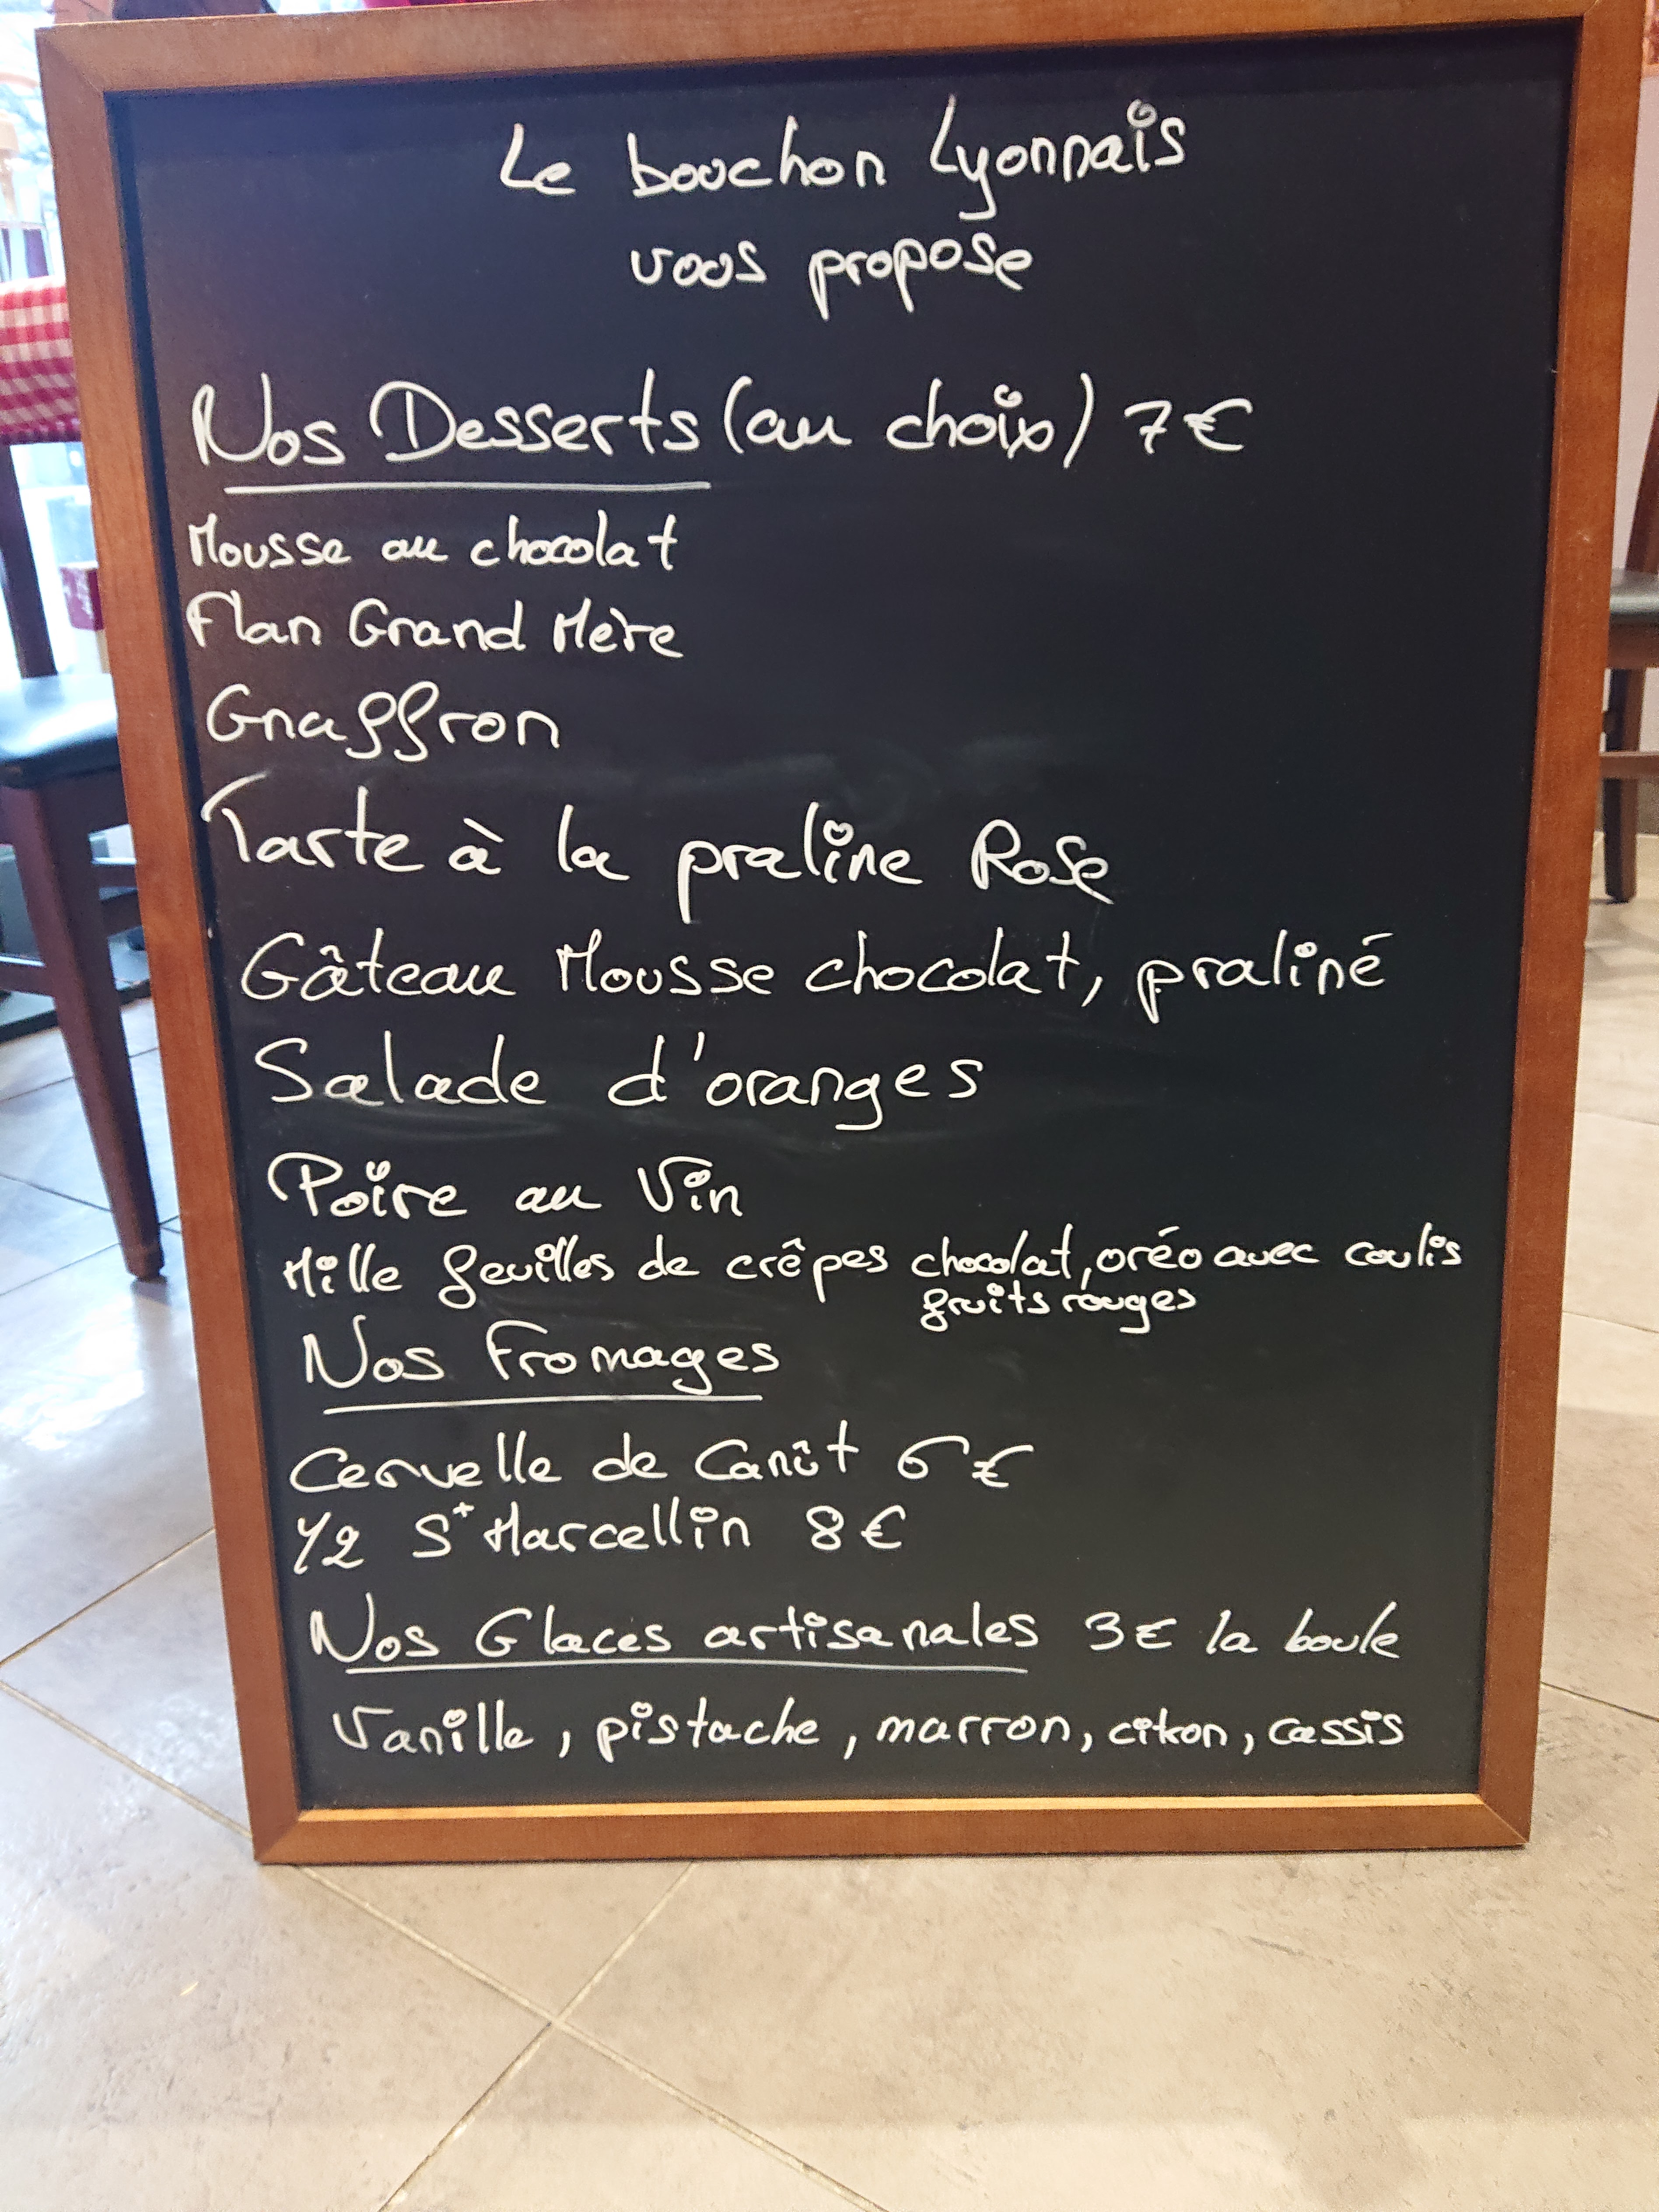 Le bouchon Lyonnais
vous propose
Nos Desserts (au choix) 7€
Mousse au chocolat
Flan Grand Mère
Gnaffron
Tarte à la praline Rose
Gâteau Mousse chocolat, praliné
Salade d'oranges
Poire au Vin
Mille feuilles de crêpes chocolat, oréo avec coulis
fruits rouges
Nos Fromages
Cervelle de Canût 6€
1/2 St Marcellin 8€
Nos Glaces artisanales 3€ la boule
Vanille, pistache, marron, citron, cassis